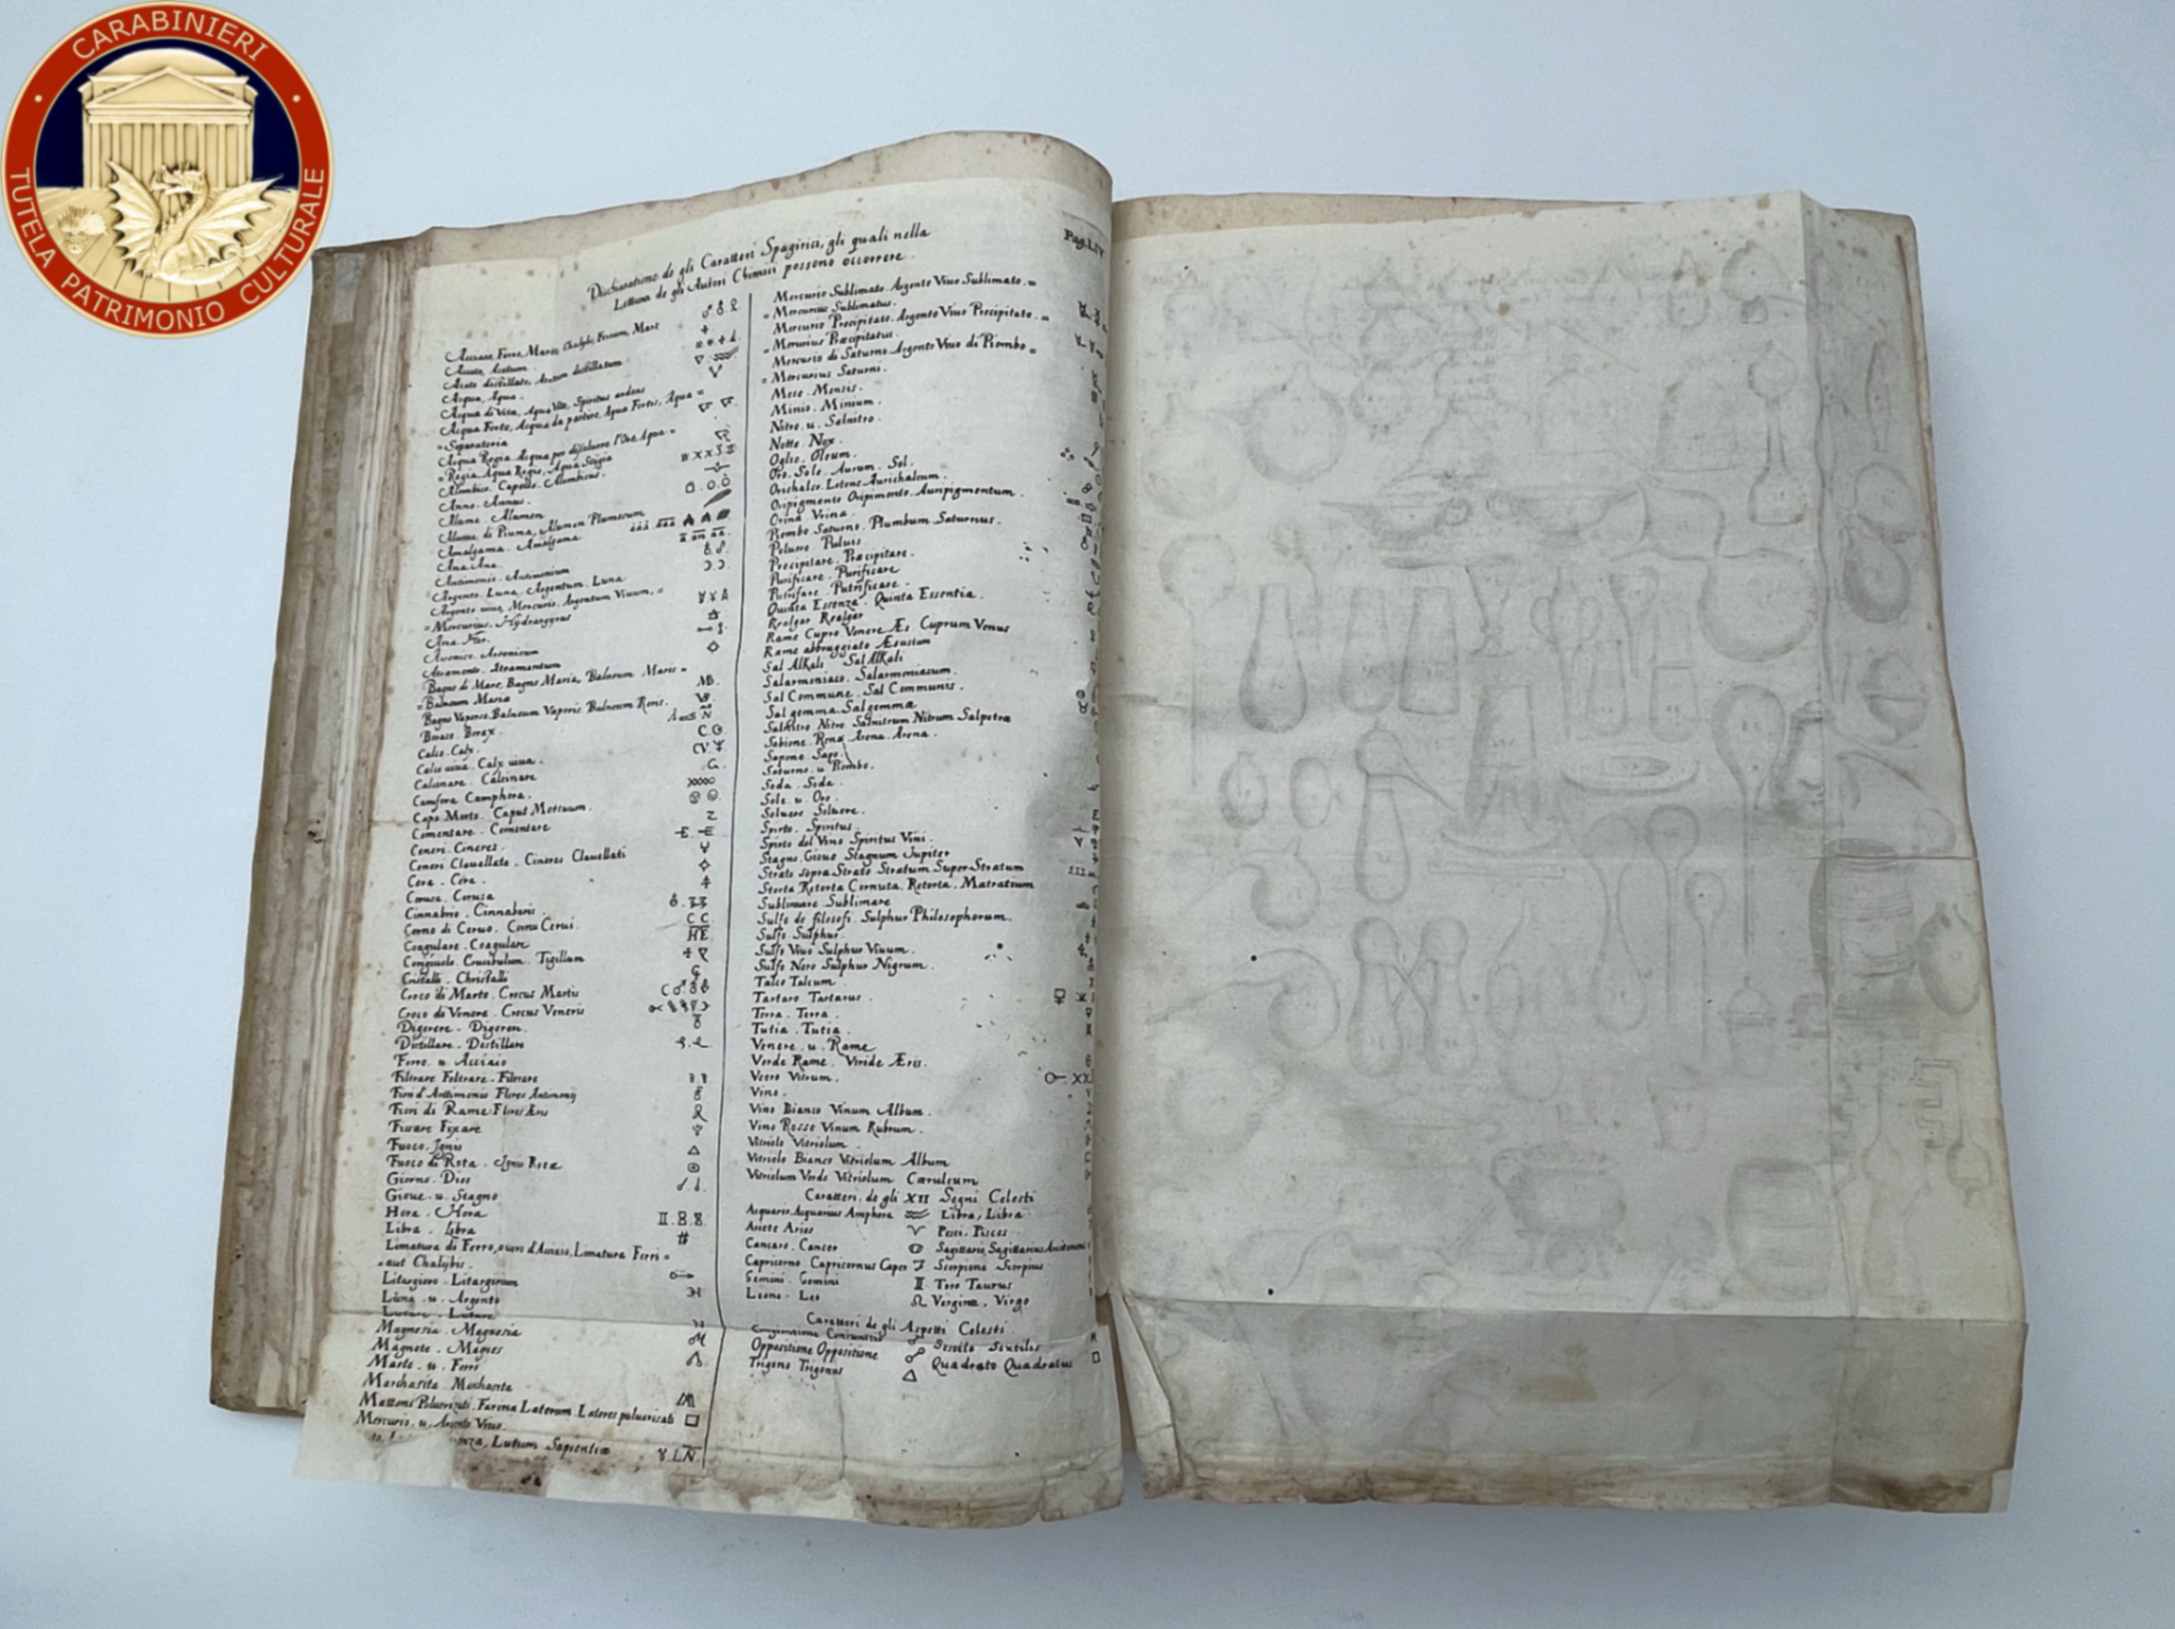 CARABINIERI
TUTELA PATRIMONIO CULTURALE
Dichiaratione de gli Caratteri Spagirici, gli quali nella
Lettura de gli Autori Chimici possono occorrere.
Pag. LIV
Acciaio, Ferro, Marte, Chalybs, Ferrum, Mars
Aceto, Acetum.
Aceto distillato, Acetum distillatum
Acqua, Aqua.
Acqua di Vita, Aqua Vitæ, Spiritus ardens
Acqua Forte, Acqua da partire, Aqua Fortis, Aqua =
= Separatoria
Acqua Regia Acqua per dissoluere l'Oro, Aqua =
= Regia, Aqua Regis, Aqua Stigia
Alembico, Capello, Alembicus.
Anno. Annus.
Alume. Alumen
Alume di Piuma, Alumen Plumosum
Amalgama. Amalgama
Ana Ana.
Antimonio. Antimonium
Argento. Luna. Argentum. Luna
Argento uiuo, Mercurio, Argentum Viuum, =
= Mercurius. Hydrargyrus
Arsenico. Arsenicum
Atramento. Atramentum
Bagno di Mare, Bagno Maria, Balneum Maris =
= Balneum Maria
Bagno Vapore, Balneum Vaporis, Balneum Roris.
Borace. Borax.
Calce. Calx.
Calce uiua. Calx uiua.
Calcinare. Calcinare
Camfora Camphora.
Capo Morto. Caput Mortuum.
Cementare. Cementare
Ceneri. Cineres.
Ceneri Clauellate. Cineres Clauellati
Cera. Cera.
Cerusa. Cerusa
Cinnabrio. Cinnabaris.
Corno di Ceruo. Cornu Cerui. C C
Coagulare. Coagulare HE.
Corgiuolo. Crucibulum. Tigillum
Cristallo. Christalli
Croco di Marte. Crocus Martis
Croco di Venere. Crocus Veneris
Digerere. Digerere.
Distillare. Distillare
Ferro. u. Acciaio
Filtrare Feltrare. Filtrare
Fiori d'Antimonio Flores Antimonij
Fiori di Rame Flores Æris
Fissare Fixare
Fuoco. Ignis
Fuoco di Rota. Ignis Rotæ
Giorno. Dies
Gioue. u. Stagno
Hora. Hora
Libra. Libra
Limatura di Ferro, ouero d'Acciaio, Limatura Ferri =
= aut Chalybis.
Litargirio. Litargirium
Luna. u. Argento
Lutare. Lutare
Magnesia. Magnesia
Magnete. Magnes
Marte. u. Ferro
Marchasita. Marchasita
Mattoni Poluerizati. Farina Laterum. Lateres puluerisati
Mercurio. u. Argento Viuo.
Lutum Sapientiæ
Mercurio Sublimato. Argento Viuo Sublimato. =
= Mercurius Sublimatus.
Mercurio Precipitato. Argento Viuo Precipitato. =
= Mercurius Præcipitatus.
Mercurio di Saturno. Argento Viuo di Piombo =
= Mercurius Saturni.
Mese. Mensis.
Minio. Minium.
Nitro. u. Salnitro.
Notte. Nox.
Oglio. Oleum.
Oro. Sole. Aurum. Sol.
Orichalco. Letone Aurichalcum.
Oripigmento Oripimento. Auripigmentum.
Orina Vrina.
Piombo. Saturno. Plumbum. Saturnus.
Poluere Puluis
Precipitare. Præcipitare.
Purificare. Purificare
Putrifare. Putrificare.
Quinta Essenza. Quinta Essentia.
Realgar Realgar
Rame Cupro Venere Æs Cuprum Venus
Rame abbruggiato Æsustum
Sal Alkali Sal Alkali
Salarmoniaco. Salarmoniacum.
Sal Commune. Sal Communis.
Sal gemma. Sal gemmæ
Salnitro Nitro Salnitrum Nitrum Salpetræ
Sabione. Rena Arena. Arena.
Sapone. Sapo.
Saturno. u. Piombo.
Soda. Soda.
Sole. u. Oro.
Soluere Soluere.
Spirto. Spiritus.
Spirto del Vino Spiritus Vini.
Stagno. Gioue Stagnum Jupiter
Strato sopra Strato Stratum Super Stratum
Storta Retorta Cornuta. Retorta. Matratium
Sublimare Sublimare
Sulfo de filosofi. Sulphur Philosophorum.
Sulfo. Sulphur.
Sulfo Viuo Sulphur Viuum.
Sulfo Nero Sulphur Nigrum.
Talco Talcum.
Tartaro Tartarus.
Terra. Terra.
Tutia. Tutia.
Venere. u. Rame
Verde Rame. Viride Æris.
Vetro Vitrum.
Vino.
Vino Bianco Vinum Album.
Vino Rosso Vinum Rubrum.
Vitriolo Vitriolum.
Vitriolo Bianco Vitriolum Album
Vitriolum Verde Vitriolum Cæruleum
Caratteri. de gli XII Segni Celesti
Acquario. Aquarius Amphora Libra. Libra
Ariete Aries Pesci. Pisces
Cancaro. Cancer Sagittario, Sagittarius
Capricorno. Capricornus Caper Scorpione Scorpius
Gemini. Gemini Toro Taurus
Leone. Leo Vergine. Virgo
Caratteri de gli Aspetti Celesti
Sestile Sextilis
Oppositione Oppositione Quadrato Quadratus
Trigono Trigonus